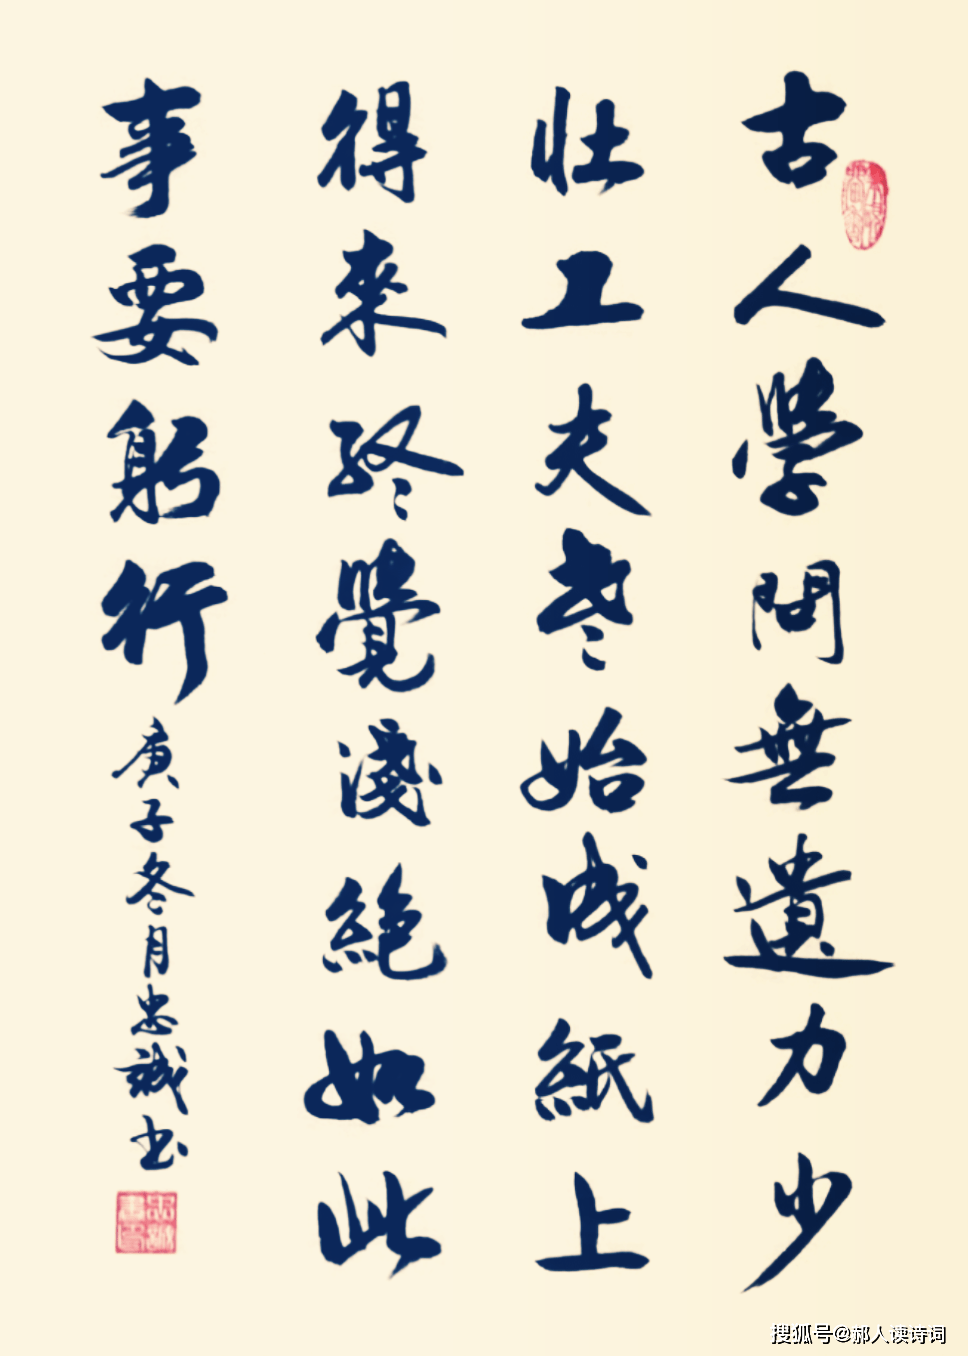 古人學問無遺力少
壯工夫老始成紙上
得來終覺淺絕如此
事要躬行
庚子冬月忠誠书
搜狐号@郝人读诗词